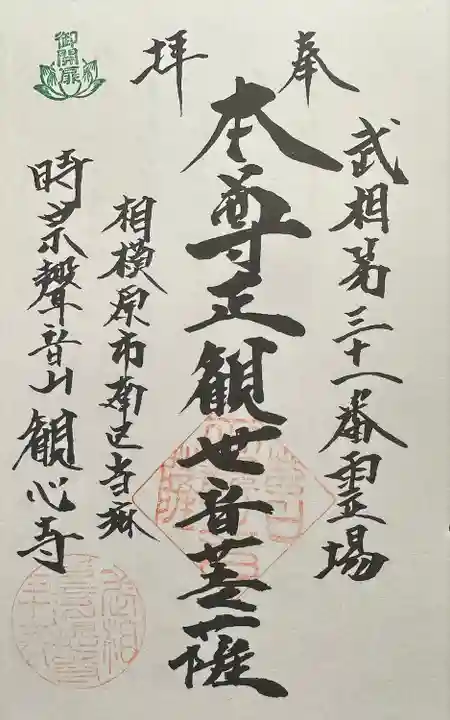 奉拝
武相第三十一番霊場
本尊正観世音菩薩
相模原市南区当麻
時宗聲音山観心寺
御開扉